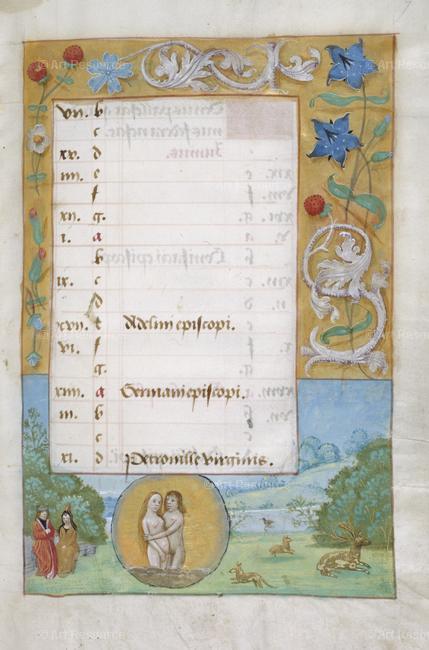 vii. b
c
xv. d
iiii. e
f
xii. g.
i. a
b
ix. c
d
xvii. e Aldelmi episcopi.
vi. f
g.
xiiii. a Germani episcopi.
iii. b
c
xi. d Petronille virginis.
© Art Resource